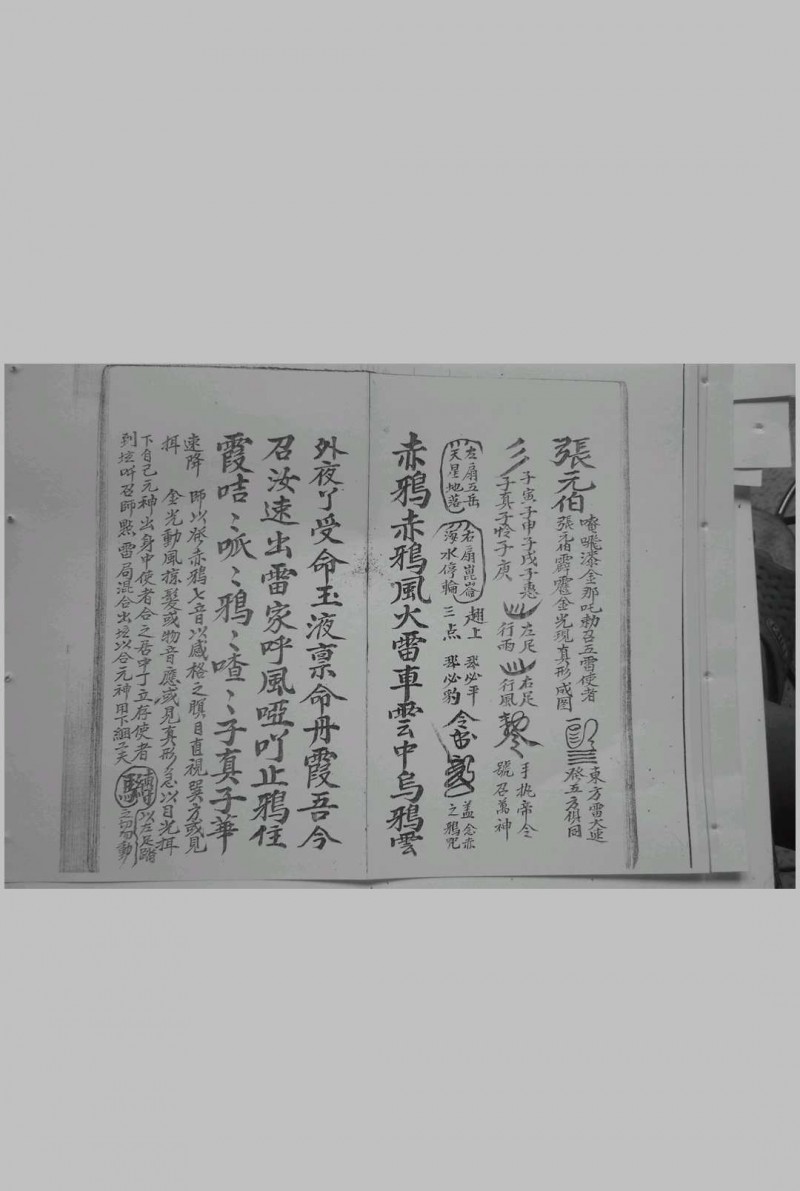 張元伯
唵 漆金那吒勅召五雷使者
張元伯霹靂金光現真形成圖
東方雷大延
啓五方俱同
子寅子申子戊子惠
子真子怜子庚
左足
行雨
右足
行風
手执帝令
號召萬神
左扇五岳
天星地落
右扇崑崙
海水停輪
趙上 必平
三点 必豹
盖念赤
之鴉咒
赤鴉赤鴉風火雷車雲中烏鴉雲
外夜丫受命玉液禀命丹霞吾今
召汝速出雷家呼風啞吖止鴉住
霞咭〻哌〻鴉〻喳〻子真子華
速降 師以 赤鴉七音以感格之瞑目直視巽方或見
揖 金光動風掠髮或物音應或見真形急以目光揖
下自己元神出身中使者合之君中丁立存使者
到坛吁召師點雷局混合出坛以合元神用下細二天
以左足踏
之 動